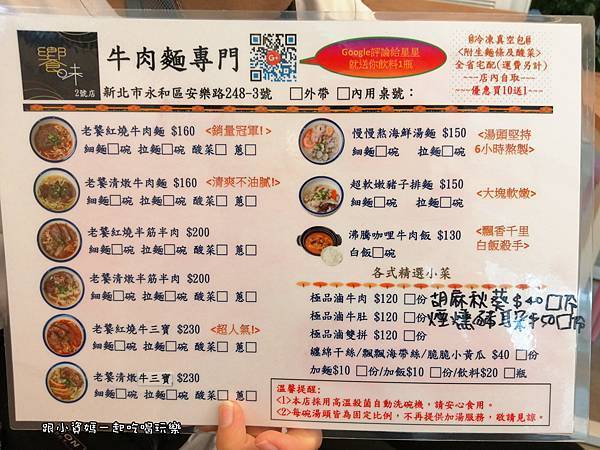 饗味
2號店
牛肉麵專門
新北市永和區安樂路248-3號 □外帶 □內用桌號：
Google評論給星星
就送你飲料1瓶
G+
#冷凍真空包#
<附生麵條及酸菜>
全省宅配(運費另計)
---店內自取---
---優惠買10送1---
老饕紅燒牛肉麵 $160 <銷量冠軍!>
細麵□碗 拉麵□碗 酸菜□ 蔥□
老饕清燉牛肉麵 $160 <清爽不油膩!>
細麵□碗 拉麵□碗 酸菜□ 蔥□
老饕紅燒半筋半肉 $200
細麵□碗 拉麵□碗 酸菜□ 蔥□
老饕清燉半筋半肉 $200
細麵□碗 拉麵□碗 酸菜□ 蔥□
老饕紅燒牛三寶 $230 <超人氣!>
細麵□碗 拉麵□碗 酸菜□ 蔥□
老饕清燉牛三寶 $230
細麵□碗 拉麵□碗 酸菜□ 蔥□
慢慢熬海鮮湯麵 $150 <湯頭堅持
細麵□碗 拉麵□碗 6小時熬製>
超軟嫩豬子排麵 $150 <大塊軟嫩>
細麵□碗 拉麵□碗
沸騰咖哩牛肉飯 $130 <飄香千里
白飯□碗 白飯殺手>
各式精選小菜
極品滷牛肉 $120 □份 胡麻秋葵$40□份
極品滷牛肚 $120 □份 煙燻豬耳朵$50□份
極品滷雙拼 $120 □份
纏綿干絲/飄飄海帶絲/脆脆小黃瓜 $40 □份
加麵$10 □份/加飯$10□份/飲料$20 □瓶
溫馨提醒:
<1>本店採用高溫殺菌自動洗碗機，請安心食用。
<2>每碗湯頭皆為固定比例，不再提供加湯服務，敬請見諒。
跟小資媽一起吃喝玩樂